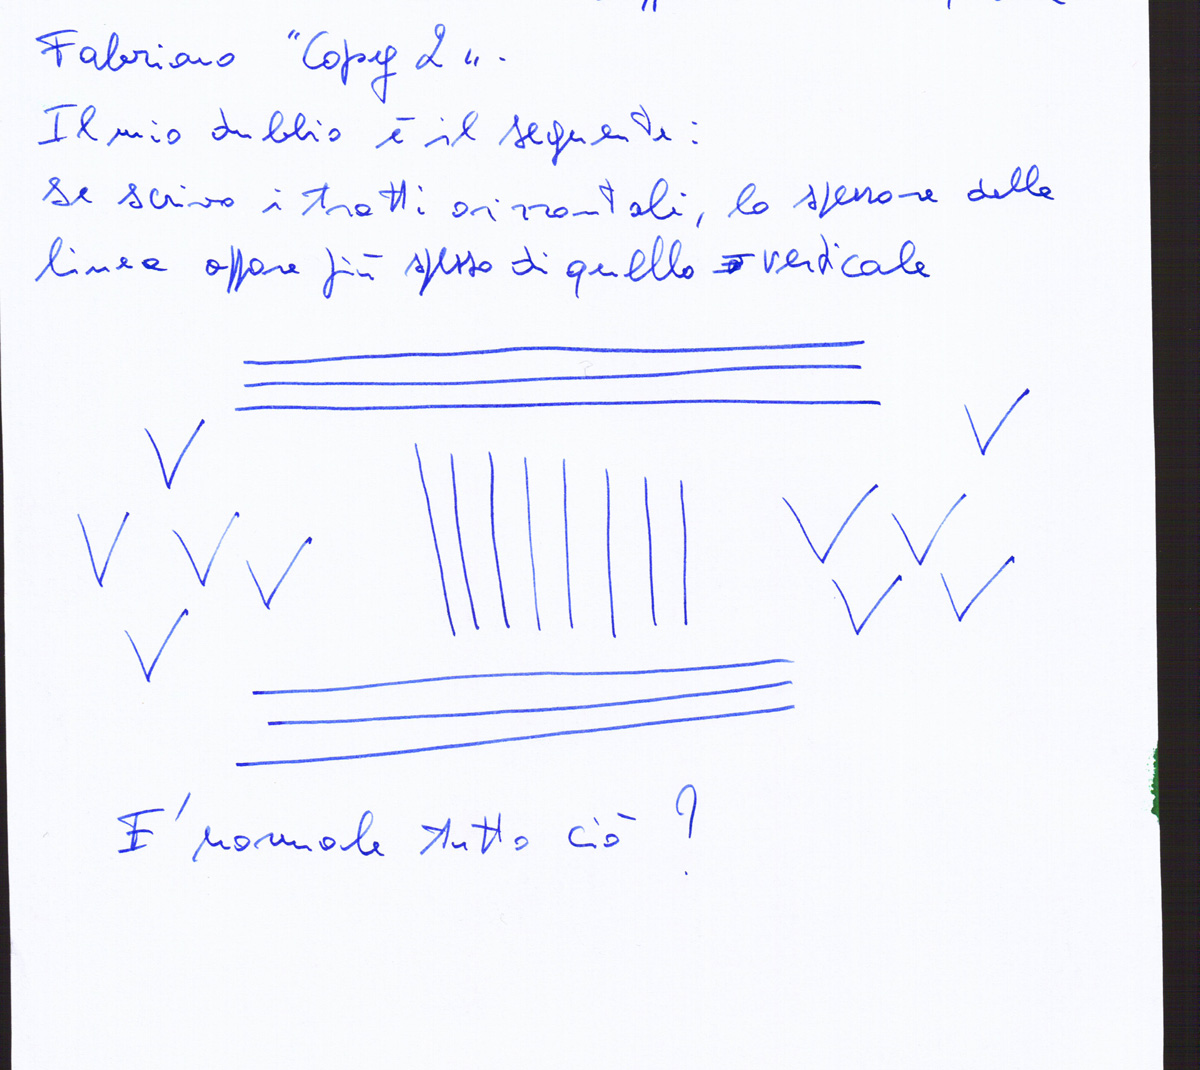 Fabriano "Copy 2".
Il mio dubbio è il seguente:
se scrivo i tratti orizzontali, lo spessore della
linea appare più spesso di quello verticale
E' normale tutto ciò ?